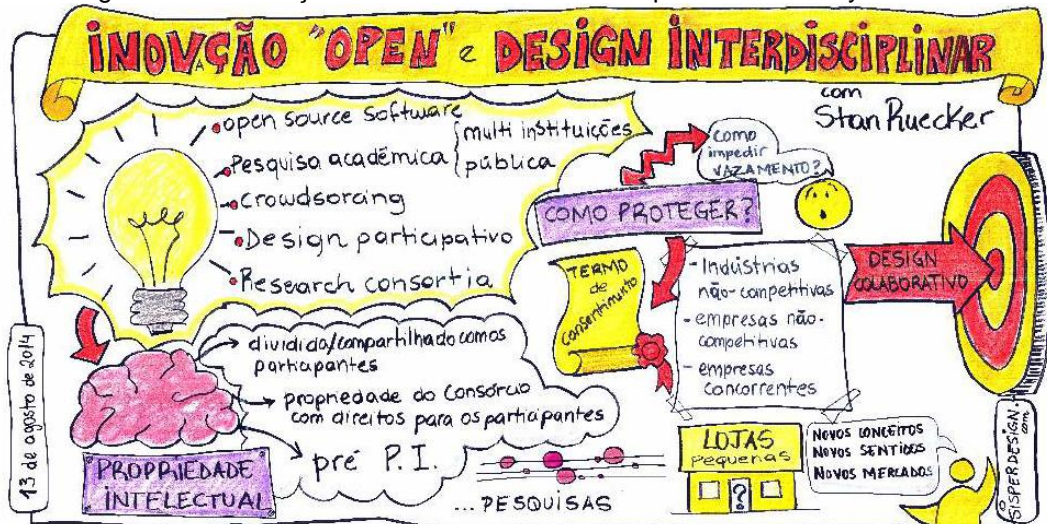 INOVAÇÃO "OPEN" e DESIGN INTERDISCIPLINAR
com
Stan Ruecker
open source software
Pesquisa acadêmica { multi instituições
pública
crowdsorcing
Design participativo
Research consortia
COMO PROTEGER?
como
impedir
VAZAMENTO?
TERMO
de
consentimento
- Indústrias
não-competitivas
- empresas não-
competitivas
- empresas
concorrentes
DESIGN
COLABORATIVO
13 de agosto de 2014
dividido/compartilhado com os
participantes
propriedade do Consórcio
com direitos para os participantes
pré P.I.
PROPRIEDADE
INTELECTUAL
... PESQUISAS
LOJAS
Pequenas
?
NOVOS CONCEITOS
NOVOS SENTIDOS
NOVOS MERCADOS
SISPERDESIGN.
com